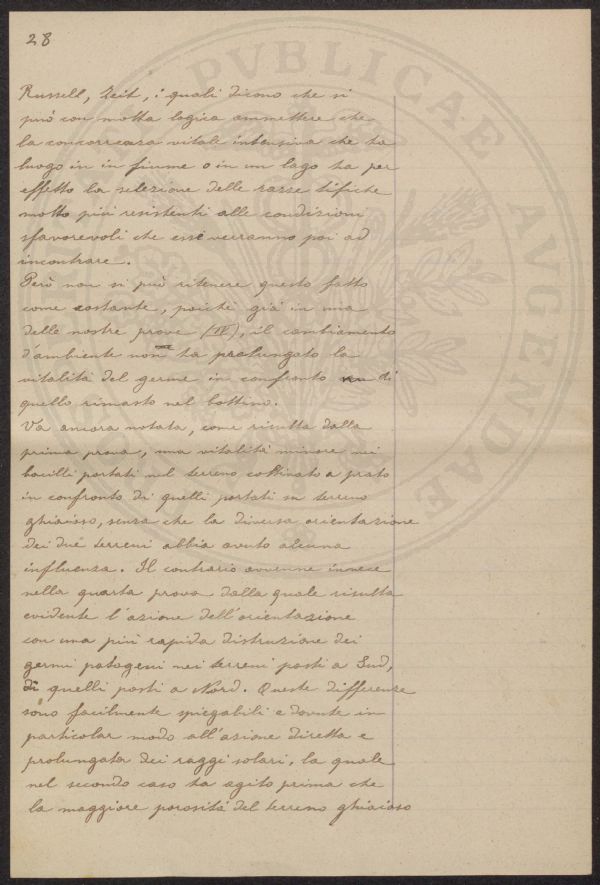 28
Russell, Zeit, i quali dicono che si
può con molta logica ammettere che
la concorrenza vitale intensiva che ha
luogo in in fiume o in un lago ha per
effetto la selezione delle razze tifiche
molto più resistenti alle condizioni
sfavorevoli che esse verranno poi ad
incontrare.
Però non si può ritenere questo fatto
come costante, poichè già in una
delle nostre prove (IV), il cambiamento
d'ambiente non ha prolungato la
vitalità del germe in confronto di
quello rimasto nel bottino.
Va ancora notata, come risulta dalla
prima prova, una vitalità minore nei
bacilli portati nel terreno coltivato a prato
in confronto di quelli portati su terreno
ghiaioso, senza che la diversa orientazione
dei due terreni abbia avuto alcuna
influenza. Il contrario avvenne invece
nella quarta prova dalla quale risulta
evidente l'azione dell'orientazione
con una più rapida distruzione dei
germi patogeni nei terreni posti a Sud,
di quelli posti a Nord. Queste differenze
sono facilmente spiegabili e dovute in
particolar modo all'azione diretta e
prolungata dei raggi solari, la quale
nel secondo caso ha agito prima che
la maggiore porosità del terreno ghiaioso
PVBLICAE AVGENDAE